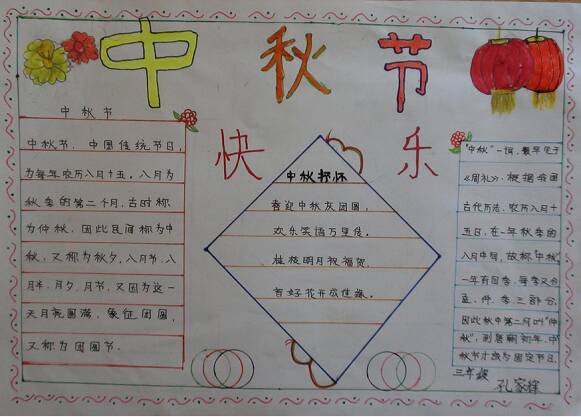 中秋节
快乐
中秋节
中秋节,中国传统节日,
为每年农历八月十五。八月为
秋季的第二个月,古时称
为仲秋,因此民间称为中
秋,又称为秋夕,八月节,八
月半,月夕,月节,又因为这一
天月亮圆满,象征团圆,
又称为团圆节.
中秋抒怀
喜迎中秋庆团圆,
欢乐笑语万里传。
桂枝明月祝福贺,
智好花开成佳缘。
"中秋"一词,最早见于
《周礼》.根据我国
古代历法,农历八月十
五日,在一年秋季的
八月中旬,故称"中秋"
一年有四季,每季又分
孟,仲,季三部分,
因此秋中第二月叫"仲
秋",到唐朝初年,中
秋节才成为固定节日.
三年级
孔家